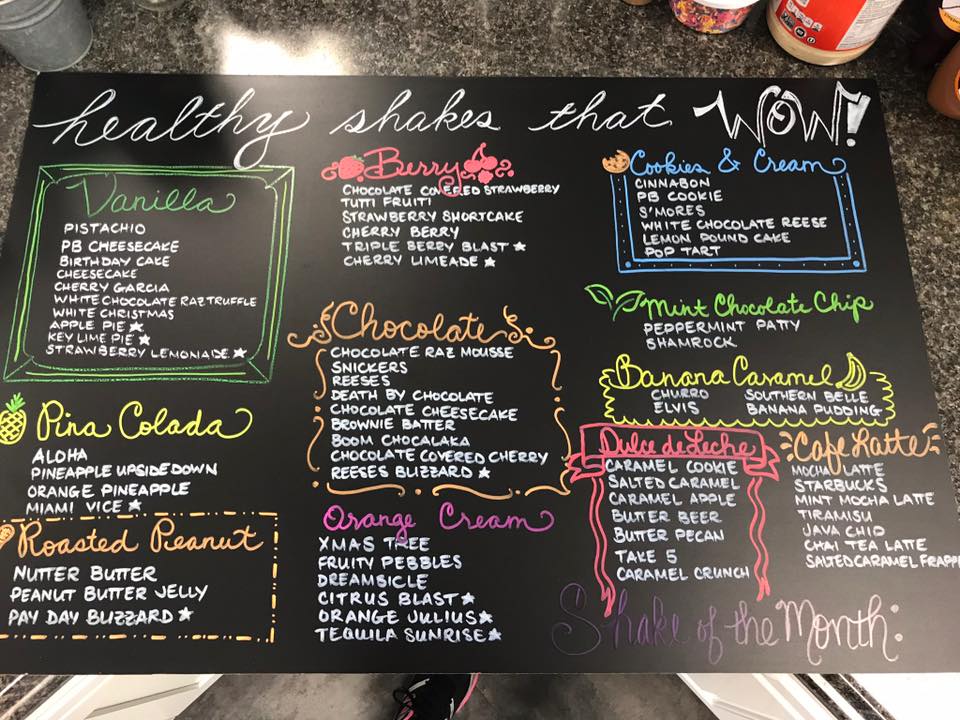 healthy shakes that WOW!
Vanilla
PISTACHIO
PB CHEESECAKE
BIRTHDAY CAKE
CHEESECAKE
CHERRY GARCIA
WHITE CHOCOLATE RAZ TRUFFLE
WHITE CHRISTMAS
APPLE PIE ★
KEY LIME PIE ★
STRAWBERRY LEMONAIDE ★
Pina Colada
ALOHA
PINEAPPLE UPSIDEDOWN
ORANGE PINEAPPLE
MIAMI VICE ★
Roasted Peanut
NUTTER BUTTER
PEANUT BUTTER JELLY
PAY DAY BLIZZARD ★
Berry
CHOCOLATE COVERED STRAWBERRY
TUTTI FRUITI
STRAWBERRY SHORTCAKE
CHERRY BERRY
TRIPLE BERRY BLAST ★
CHERRY LIMEADE ★
Chocolate
CHOCOLATE RAZ MOUSSE
SNICKERS
REESES
DEATH BY CHOCOLATE
CHOCOLATE CHEESECAKE
BROWNIE BATTER
BOOM CHOCALAKA
CHOCOLATE COVERED CHERRY
REESES BLIZZARD ★
Orange Cream
XMAS TREE
FRUITY PEBBLES
DREAMSICLE
CITRUS BLAST ★
ORANGE JULIUS ★
TEQUILA SUNRISE ★
Cookies & Cream
CINNABON
PB COOKIE
S'MORES
WHITE CHOCOLATE REESE
LEMON POUND CAKE
POP TART
Mint Chocolate Chip
PEPPERMINT PATTY
SHAMROCK
Banana Caramel
CHURRO SOUTHERN BELLE
ELVIS BANANA PUDDING
Dulce de Leche
CARAMEL COOKIE
SALTED CARAMEL
CARAMEL APPLE
BUTTER BEER
BUTTER PECAN
TAKE 5
CARAMEL CRUNCH
Cafe Latte
MOCHA LATTE
STARBUCKS
MINT MOCHA LATTE
TIRAMISU
JAVA CHIP
CHAI TEA LATTE
SALTED CARAMEL FRAPP
Shake of the Month: